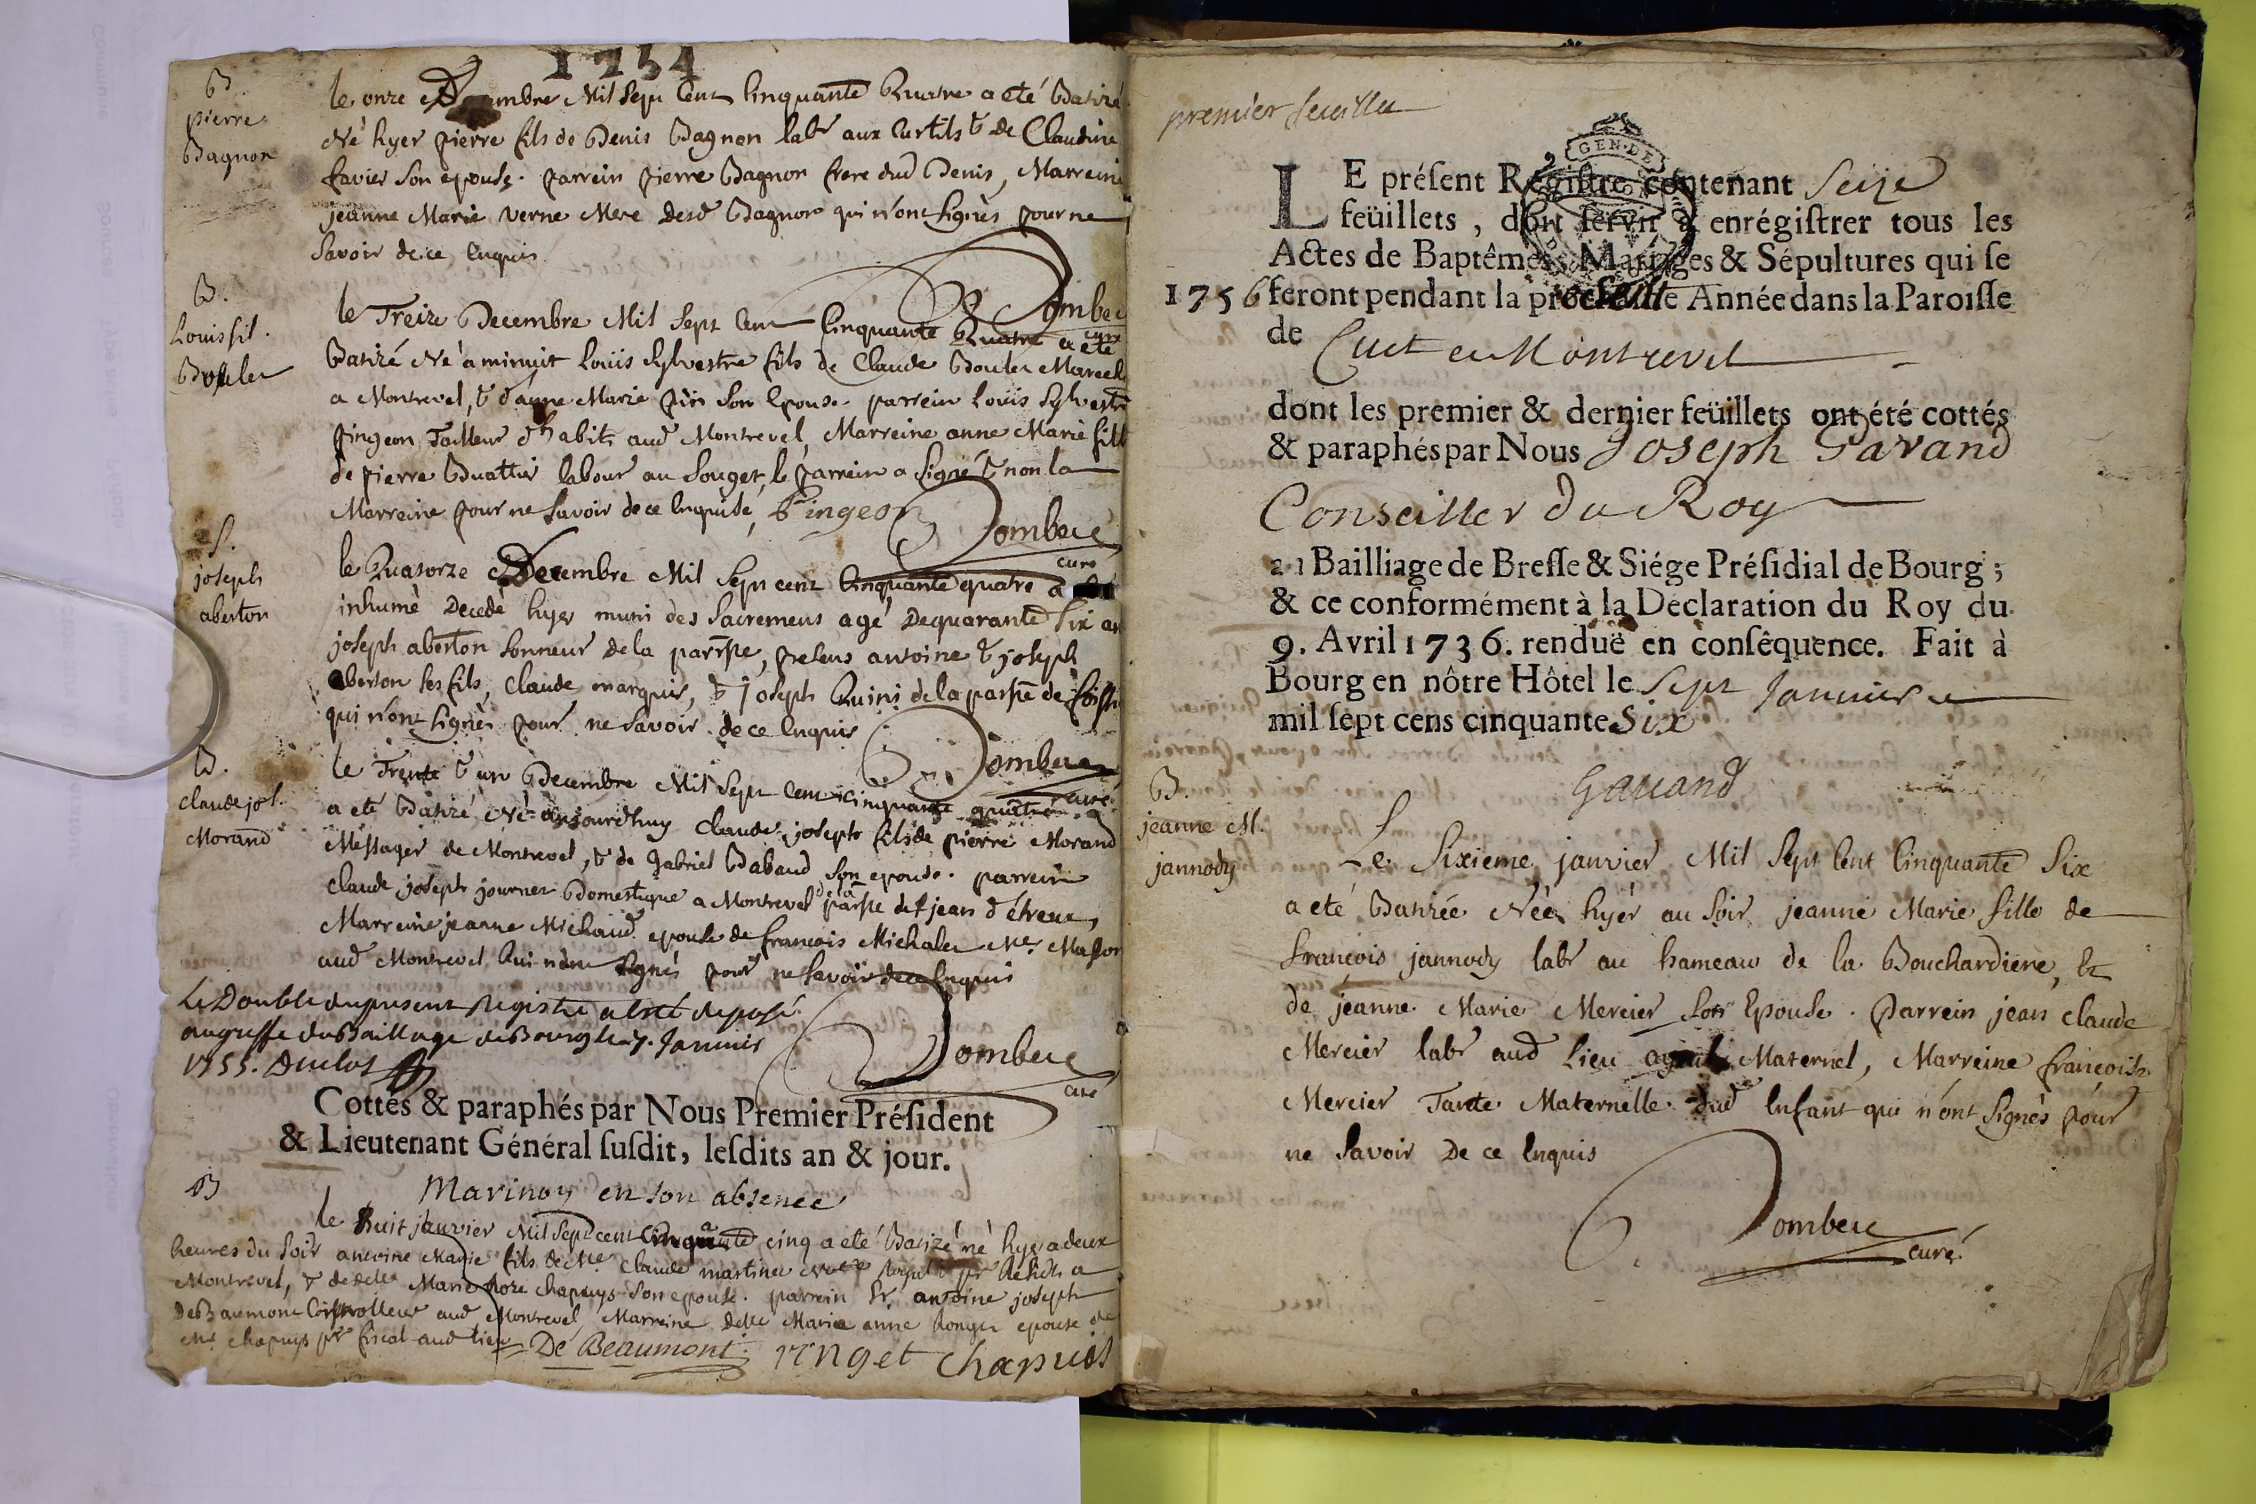 1754
B.
pierre
Bagnon
le onze Decembre Mil Sept Cent Cinquante Quatre a eté Batizé
Né hyer pierre fils de Denis Bagnon labr aux Curtils & de Claudine
favier son epouse. parrein pierre Bagnon frere dud Denis, Marreine
jeanne Marie Verne Mere desd Bagnon qui n'ont Signés pour ne
Savoir de ce Enquis
Dombeie
curé
B.
Louis sil.
Boulet
le Treize Decembre Mil Sept Cent Cinquante Quatre a été
Batizé Né a minuit Louis Sylvestre fils de Claude Boulet Marech
a Montrevel, & d'anne Marie pin Son Epouse. parrein Louis Sylvestre
pingeon Tailleur d'habits aud Montrevel, Marreine anne Marie fille
de pierre Buattier labour au Souget, le parrein a Signé & non la
Marreine pour ne Savoir de ce Enquise, Pingeon
Dombeie
curé
S.
joseph
aberton
le Quatorze Decembre Mil Sept cent Cinquante quatre a
inhumé Decedé hyer muni des Sacremens agé Dequarante Six an
joseph aberton Sonneur de la parrsse, presens antoine & joseph
aberton ses fils, Claude marquis, & joseph Quini de la parsse de
qui n'ont signés pour ne Savoir de ce Enquis
Dombeie
curé
B.
claude jos.
Morand
le Trente & un Decembre Mil Sept Cent cinquante quatre
a eté Batizé, Né aujourdhuy Claude joseph fils de pierre Morand
Messager de Montrevel, & de Gabriel Baband son epouse. parrein
Claude joseph journet Domestique a Montrevel de la parsse de St jean d'étreux,
Marreine jeanne Michaud epouse de francois Michalet Me Masson
aud Montrevel Qui n'ont Signés pour ne Savoir de ce Enquis
Dombeie
curé
Le Double du present Registre a été deposé
au greffe du Baillage de Bourg le 7. Janvier
1755. Duclos
Cottés & paraphés par Nous Premier Préſident
& Lieutenant Général ſuſdit, leſdits an & jour.
Marinon en son absence
B
le huit janvier Mil Sept cent Cinquante cinq a eté Batizé né hyer a deux
heures du Soir antoine Marie fils de Me Claude martinet Royal & pr a
Montrevel, & de delle Marie Roze chapuys Son epouse. parrein Sr. antoine joseph
DeBaumont Controlleur aud Montrevel, Marreine delle Marie anne Ronget epouse de
Me. chapuys pr fiscal aud lieu De Beaumont. ronget Chapuis
premier feuillet
GEN. DE
LE préſent Régiſtre contenant Seize
feüillets, doit ſervir à enrégiſtrer tous les
Actes de Baptêmes, Mariages & Sépultures qui ſe
1756 feront pendant la Année dans la Paroiſſe
de Cuet en Montrevel
dont les premier & dernier feüillets ont été cottés
& paraphés par Nous Joseph Gavand
Conseiller du Roy
au Bailliage de Breſſe & Siége Préſidial de Bourg;
& ce conformément à la Déclaration du Roy du
9. Avril 1736. renduë en conſéquence. Fait à
Bourg en nôtre Hôtel le Sept Janvier
mil ſept cens cinquante Six
Gavand
B.
jeanne M.
jannody
Le Sixieme janvier Mil Sept Cent Cinquante Six
a eté Batizée Née hyér au Soir jeanne Marie fille de
francois jannody labr au hameau de la Bouchardiere, Et
de jeanne Marie Mercier Son Epouse. Parrein jean Claude
Mercier labr aud Lieu ayeul Maternel, Marreine francoise
Mercier Tante Maternelle dud Enfant qui n'ont Signés pour
ne Savoir De ce Enquis
Dombeie
curé.